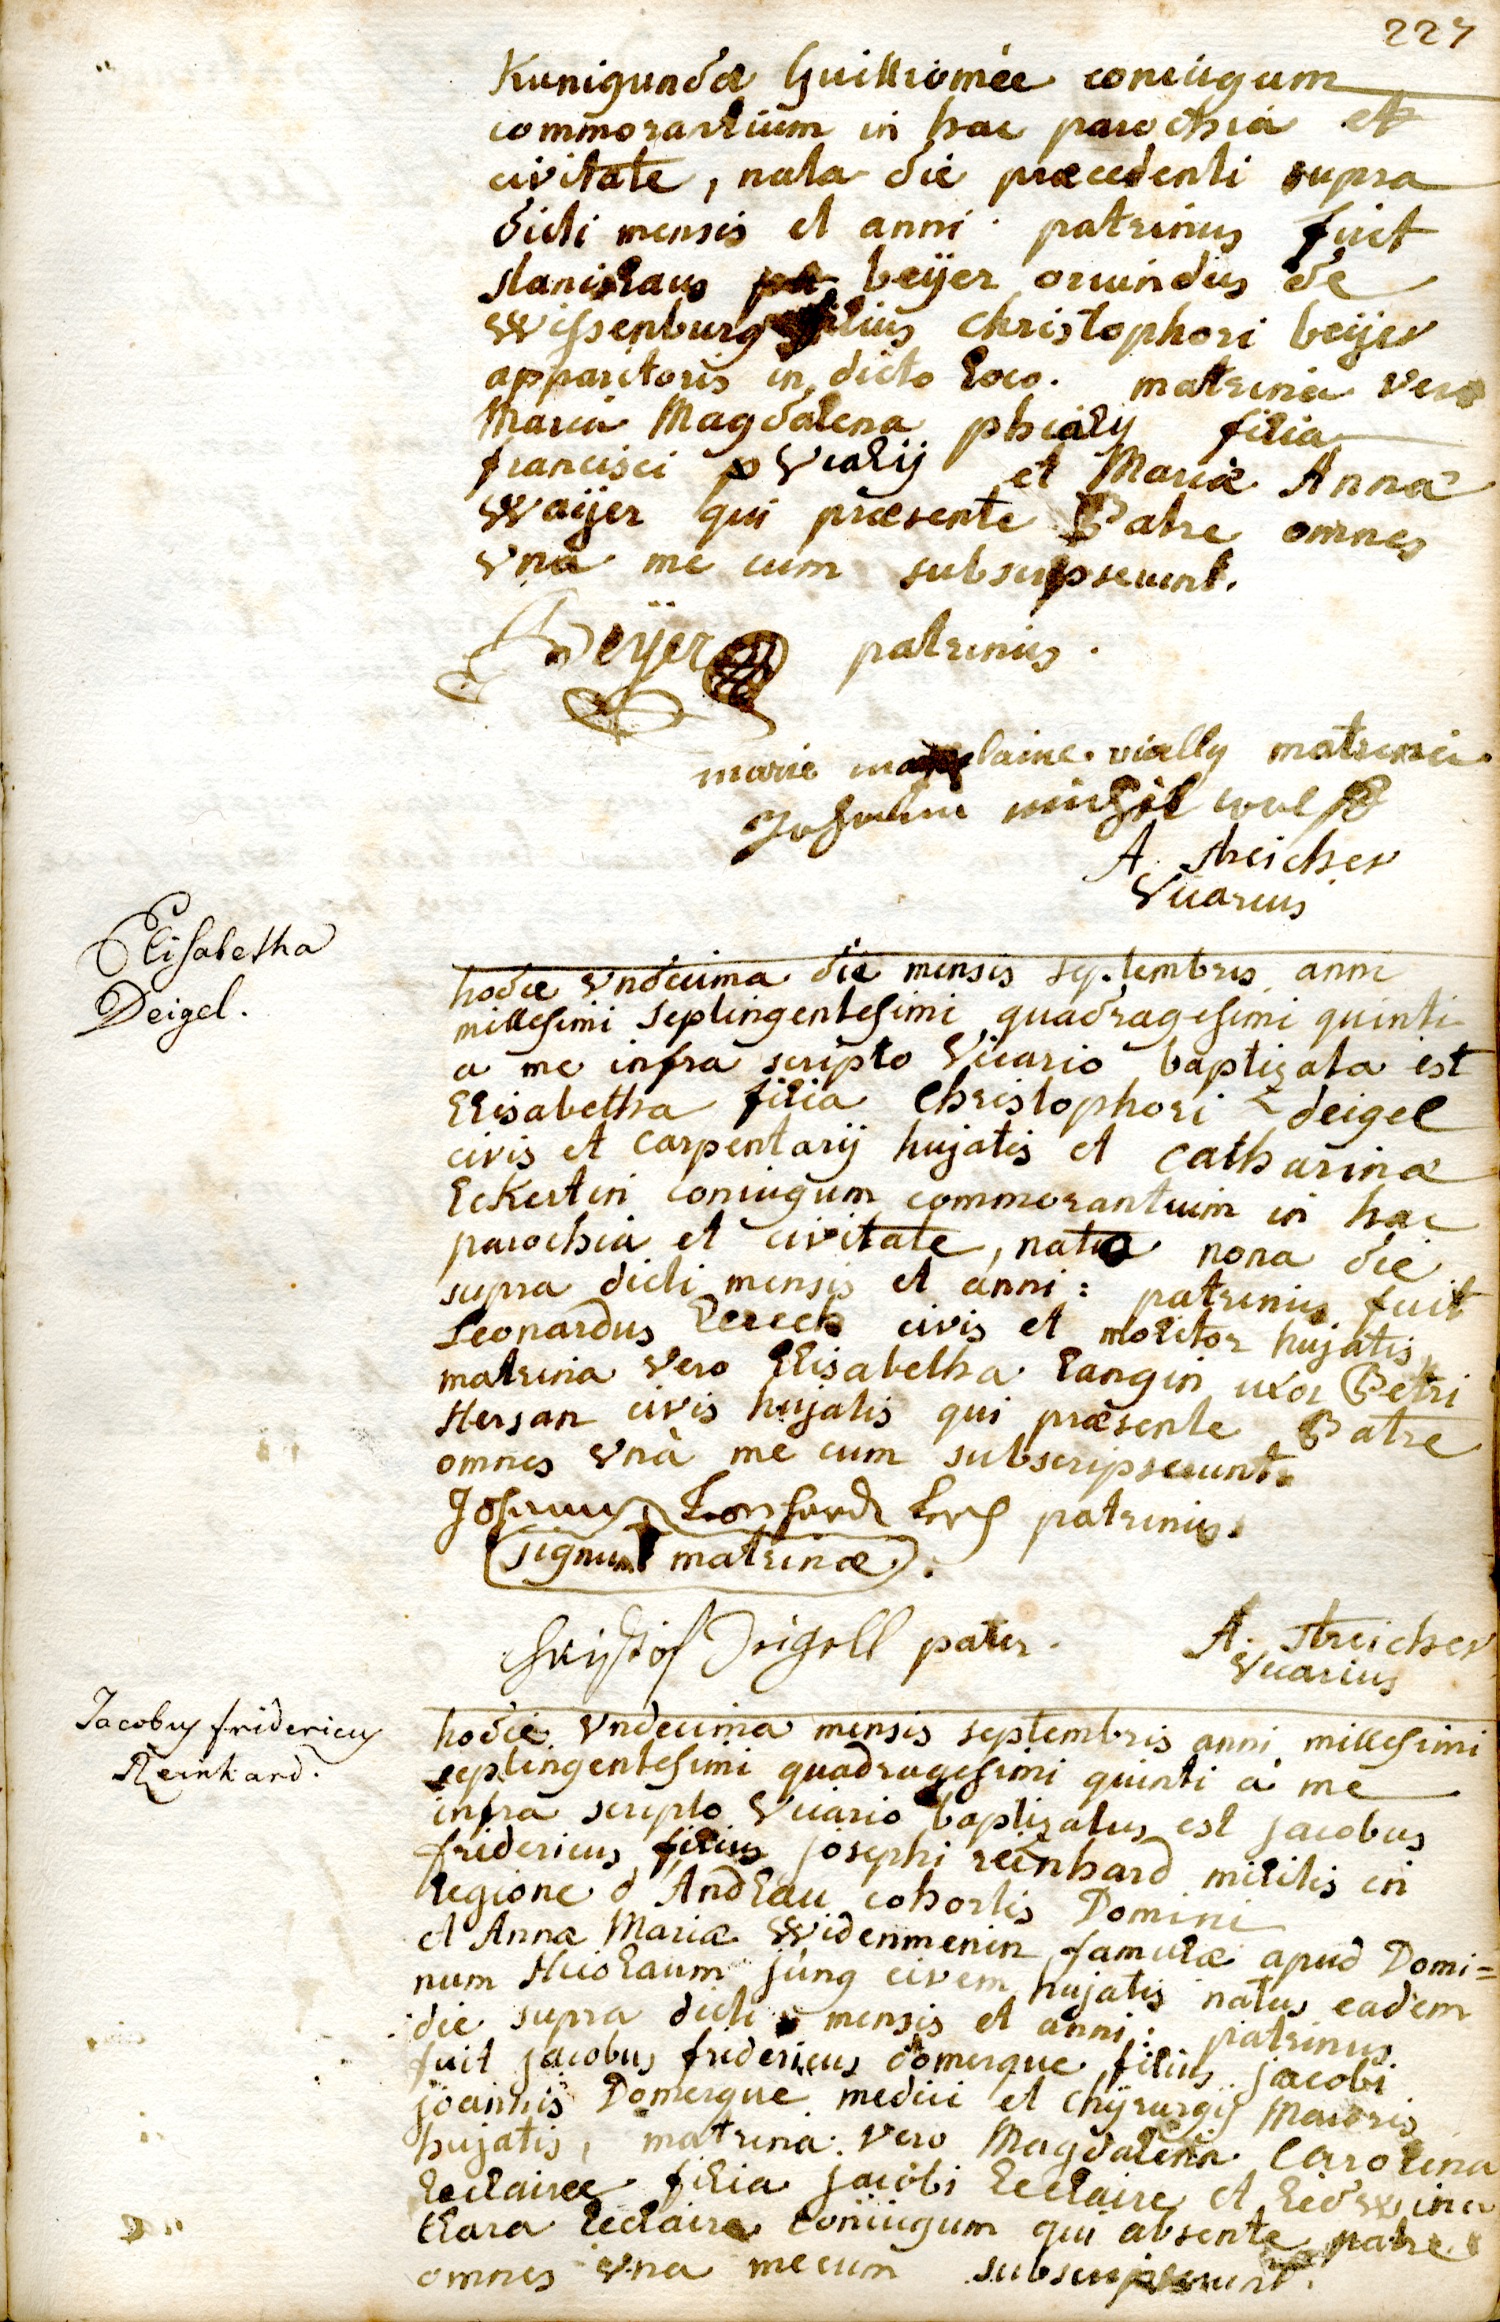 227
Kunigundæ Guilliomée coniugum
commorantium in hac parochia et
civitate, nata die præcedenti supra
dicti mensis et anni. patrinus fuit
stanislaus beijer oriundus de
Wissenburg filius Christophori beijer
apparitoris in dicto loco. matrina vero
Maria Magdalena phialy filia
francisci Vialij et Mariæ Annæ
Waijer qui præsente Patre omnes
vna me cum subscripserunt.
Beÿer patrinus.
marie laine vially matrina
michel wolff
A. Streicher
Vicarius
Elisabetha
Deigel.
hodie vndecima die mensis septembris anni
millesimi septingentesimi quadragesimi quinti
a me infra scripto Vicario baptizata est
Elisabetha filia Christophori deigel
civis et carpentarij hujatis et catharinæ
Eckertin coniugum commorantium in hac
parochia et civitate, nata nona die
supra dicti mensis et anni: patrinus fuit
Leonardus Lerch civis et molitor hujatis,
matrina vero Elisabetha Langin uxor Petri
Hersan civis hujatis qui præsente Patre
omnes vnà me cum subscripserunt.
Johannes Leonhardt Lerch patrinus.
signum matrinæ.
Christof Deigell pater.
A. Streicher
Vicarius
Jacobus fridericus
Reinhard.
hodie vndecima mensis septembris anni millesimi
septingentesimi quadragesimi quinti a me
infra scripto Vicario baptizatus est jacobus
fridericus filius josephi reinhard militis in
legione d'Andlau cohortis Domini
et Annæ Mariæ Widenmenin famulæ apud Domi=
num Nicolaum jung civem hujatis natus eadem
die supra dicti mensis et anni: patrinus
fuit jacobus fridericus domergue filius jacobi
joannis Domergue medici et chÿrurgij Maioris
hujatis, matrina vero Magdalena Carolina
Leclairee filia jacobi Leclaire et Ludwina
Clara Leclaire coniugum qui absente patre
omnes vna mecum subscripserunt.